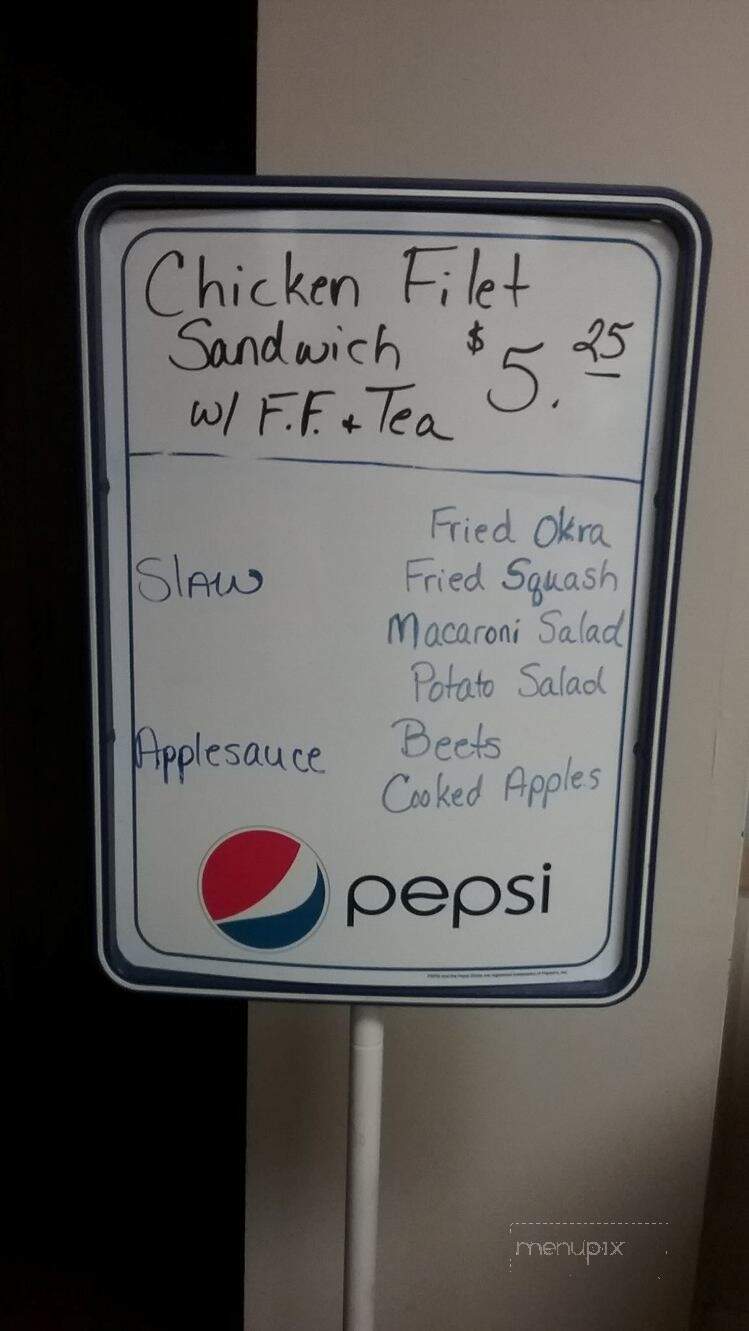 Chicken Filet
Sandwich $5.25
w/ F.F. + Tea
Fried Okra
Slaw
Fried Squash
Macaroni Salad
Potato Salad
Applesauce
Beets
Cooked Apples
pepsi
menupix